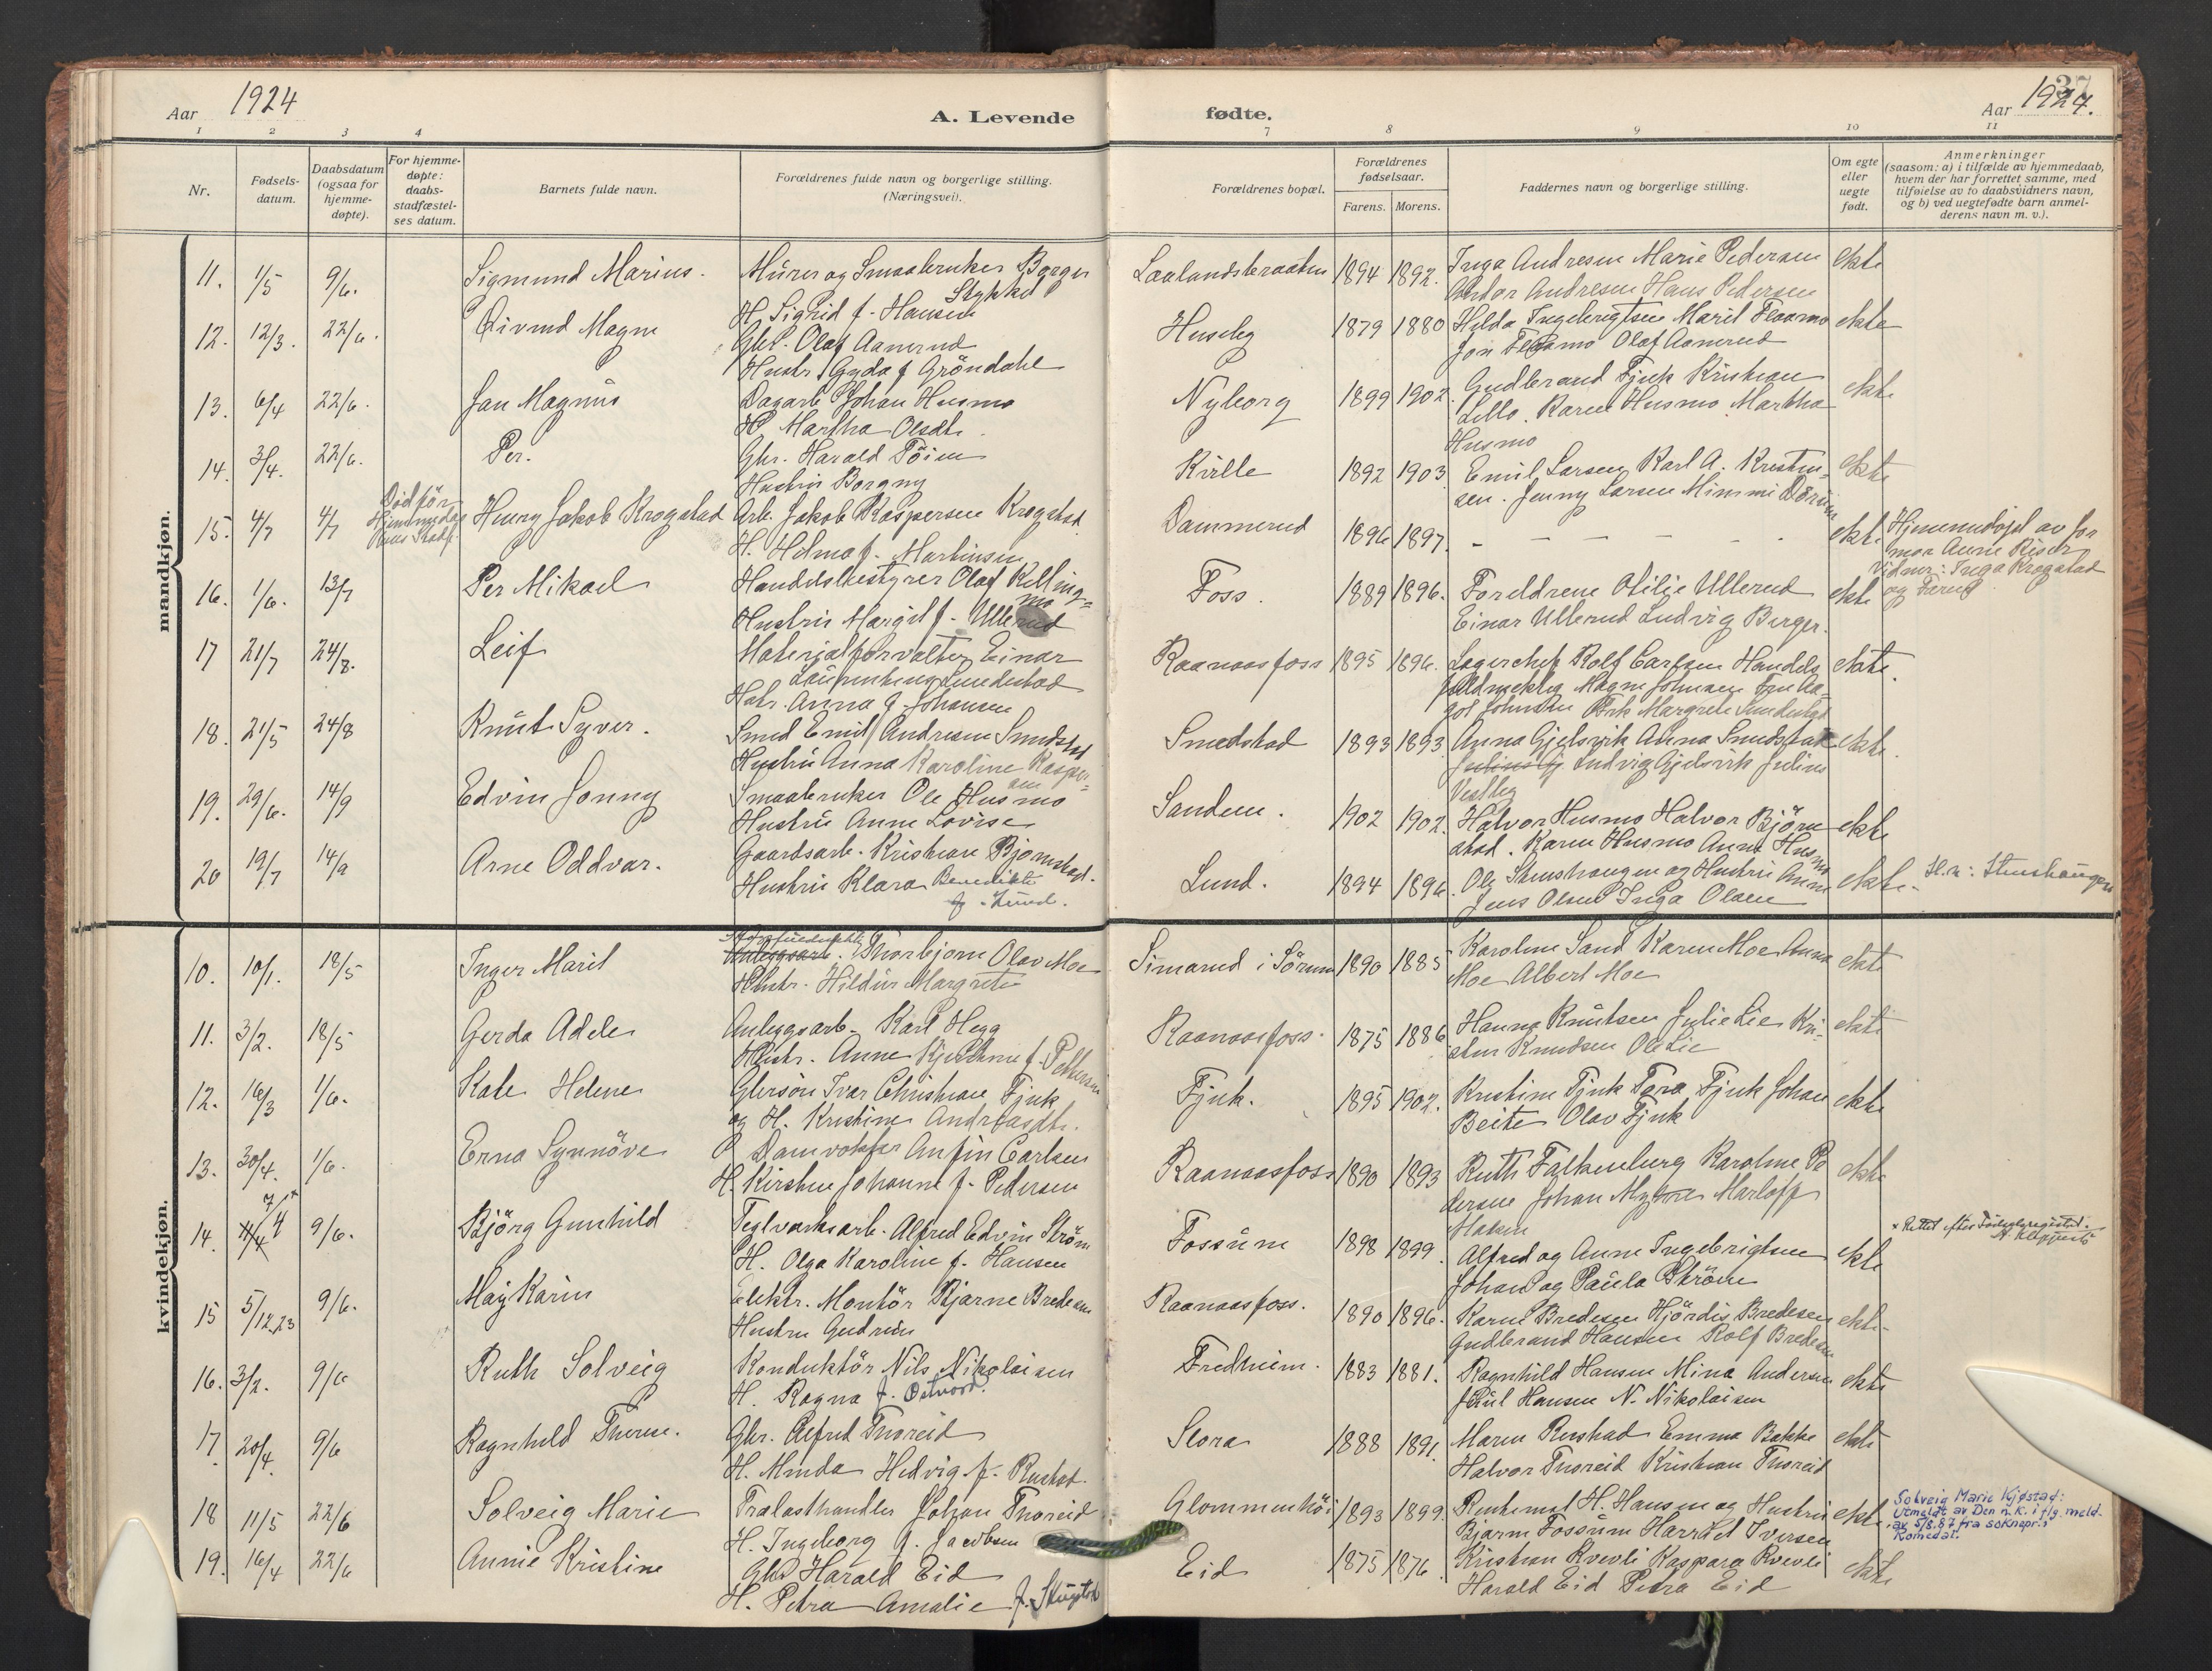 Aar 1924
A. Levende
1 2 3 4
Nr.
Fødsels-
datum.
Daabsdatum
(ogsaa for
hjemme-
døpte).
For hjemme-
døpte:
daabs-
stadfæstel-
ses datum.
Barnets fulde navn.
Forældrenes fulde navn og borgerlige stilling.
(Næringsvei).
mandkjøn.
11. 1/5 9/6. Sigmund Marius. Murer og Smaabruker Borger
Stykket
H. Sigrid f. Hansen
12. 12/3. 22/6. Eivind Magne Gbr. Olaf Aamerud
Hustr. Gyda f. Gröndahl
13. 6/4 22/6. Jan Magnus Dagarb. Johan Husmo
H. Martha Olsdtr.
14. 3/4. 22/6. Per. Gbr. Harald Töien
Hustru Borgny
15. 4/7 4/7 Död för
Hjemmedaa
bens Stadf.
Henry Jakob Krogstad Arb. Jakob Kaspersen Krogstad
H. Helma f. Martinsen
16. 1/6. 13/7 Per Mikael Handelsbestyrer Olaf Killing=
mo
Hustru Margit f. Ullerud
17 21/7 24/8. Leif Materialforvalter Einar
Smedestad
Hstr. Anna f. Johansen
18. 21/5 24/8 Knut Syver. Smed Emil Andresen Smedstad
Hustru Anna Karoline Kasper=
sen
19. 29/6. 14/9 Edvin Jonny Smaabruker Ole Husmo
Hustru Anne Lovise
20 19/7 14/9 Arne Oddvar. Gaardsarb. Kristian Bjørnstad.
Hustru Klara Benedikte
f. Lund.
kvindekjøn.
10. 10/1. 18/5 Inger Marit Anlegsarb. Thorbjørn Olav Moe
Hustr. Hildur Margrete
11. 3/2. 18/5 Gerda Adele Anlegsarb. Karl Hegg
Hustr. Anne Kjerstine f. Pettersen
12. 16/3 1/6. Kate Helene Gbrsön Ivar Christian Fjuk
og H. Kristine Andreasdtr.
13. 30/4. 1/6. Erna Synnöve Damvokter Anfin Carlsen
H. Kirsten Johanne f. Pedersen
14. 7/4 9/6. Björg Gunhild Teglverksarb. Alfred Edvin Ström
H. Olga Karoline f. Hansen
15 5/12.23 9/6. May Karin Elektr. Montör Bjarne Bredesen
Hustru Gudrun
16. 3/2. 9/6 Ruth Solveig Konduktör Nils Nikolaisen
H. Ragna f. Ostvold.
17. 20/4. 9/6 Ragnhild Therese. Gbr. Alfred Tnoreid
H. Minda Hedvig f. Rustad.
18 11/5 22/6 Solveig Marie Trælasthandler Johan Tnoreid
H. Ingeborg f. Jacobsen
19. 16/4 22/6 Annie Kristine Gbr. Harald Eid
H. Petra Amalie f. Skugstad
37
fødte.
Aar 1924.
7 8 9 10 11
Forældrenes bopæl.
Forældrenes
fødselsaar.
Farens. Morens.
Faddernes navn og borgerlige stilling.
Om egte
eller
uegte
født.
Anmerkninger
(saasom: a) i tilfælde av hjemmedaab,
hvem der har forrettet samme, med
tilføielse av to daabsvidners navn,
og b) ved uegtefødte barn anmel-
derens navn m. v.).
Laalandsbraaten 1894 1892. Inga Andresen Marie Pedersen ekte
Andor Andresen Hans Pedersen
Huseby 1879 1880 Hilda Ingebrigtsen Marit Flaamo ekte
Jon Flaamo Olaf Aamerud
Nyborg 1899 1902. Gudbrand Fjuk Kristian ekte
Lillo. Karen Husmo Martha
Husmo
Kirlle 1892 1903 Emil Larsen Karl A. Kristen= ekte
sen. Jenny Larsen Mimmi
Dammerud 1896 1897. - - - - - ekte Hjemmedöpt av for
mor Anne Riser
Vidner: Inga Krogstad
og Faren
Foss. 1889 1896. Foreldrene Otilie Ullerud ekte
Einar Ullerud Ludvig Berger.
Raanaasfoss 1895 1896. Lagerchef Rolf Carlsen Handels ekte.
fuldmektig Magne Johnsen Fru Aa=
got Johnsen Frk Margrete Smedestad
Smedstad 1893 1893 Anna Gjelsvik Anna Smedstad ekte.
Ludvig Gjelsvik Julius
Vestby
Sanden. 1902 1902. Halvor Husmo Halvor Björn ekte
stad. Karen Husmo Anne Husmo
Lund. 1894 1896. Ole Stenshaugen og Hustru Anne ekte. Sl.n: Stenshaugen
Jens Olsen Inga Olsen
Simarud i Sörum 1890 1885 Karoline Sand Karen Moe Anna ekte
Moe Albert Moe
Raanaasfoss. 1875 1886 Hanna Knutsen Julie Lie Kri= ekte
stian Knudsen Ole Lie
Fjuk. 1895 1902. Kristine Fjuk Tora Fjuk Johan ekte
Beite Olav Fjuk
Raanaasfoss 1890 1893 Ruth Falkenburg Karoline Pe ekte
dersen Johan Myhre Marloff
Fossum 1898 1899. Alfred og Anne Ingebrigtsen ekte
Johan og Paula Ström
* Rettet efter Födselsregistret.
Raanaasfoss. 1890 1896. Karen Bredesen Hjördis Bredesen ekte.
Gudbrand Hansen Rolf Bredesen
Fredheim. 1883 1881. Ragnhild Hansen Mina Andersen ekte
Hansen N. Nikolaisen
Slora 1888 1891. Maren Rustad Emma Bakke ekte
Halvor Tnoreid Kristian Tnoreid
Glommenhöi 1893 1899. Rentemst H. Hansen og Hustru ekte.
Bjarne Fossum Harriet Iversen
Solveig Marie Kjøstad:
Utmeldt av Den n.k. i flg. meld.
av 5/8.87 fra soknepr. i
Romedal.
Eid 1875 1876. Kristian Kvevli Kaspara Kvevli ekte
Harald Eid Petra Eid